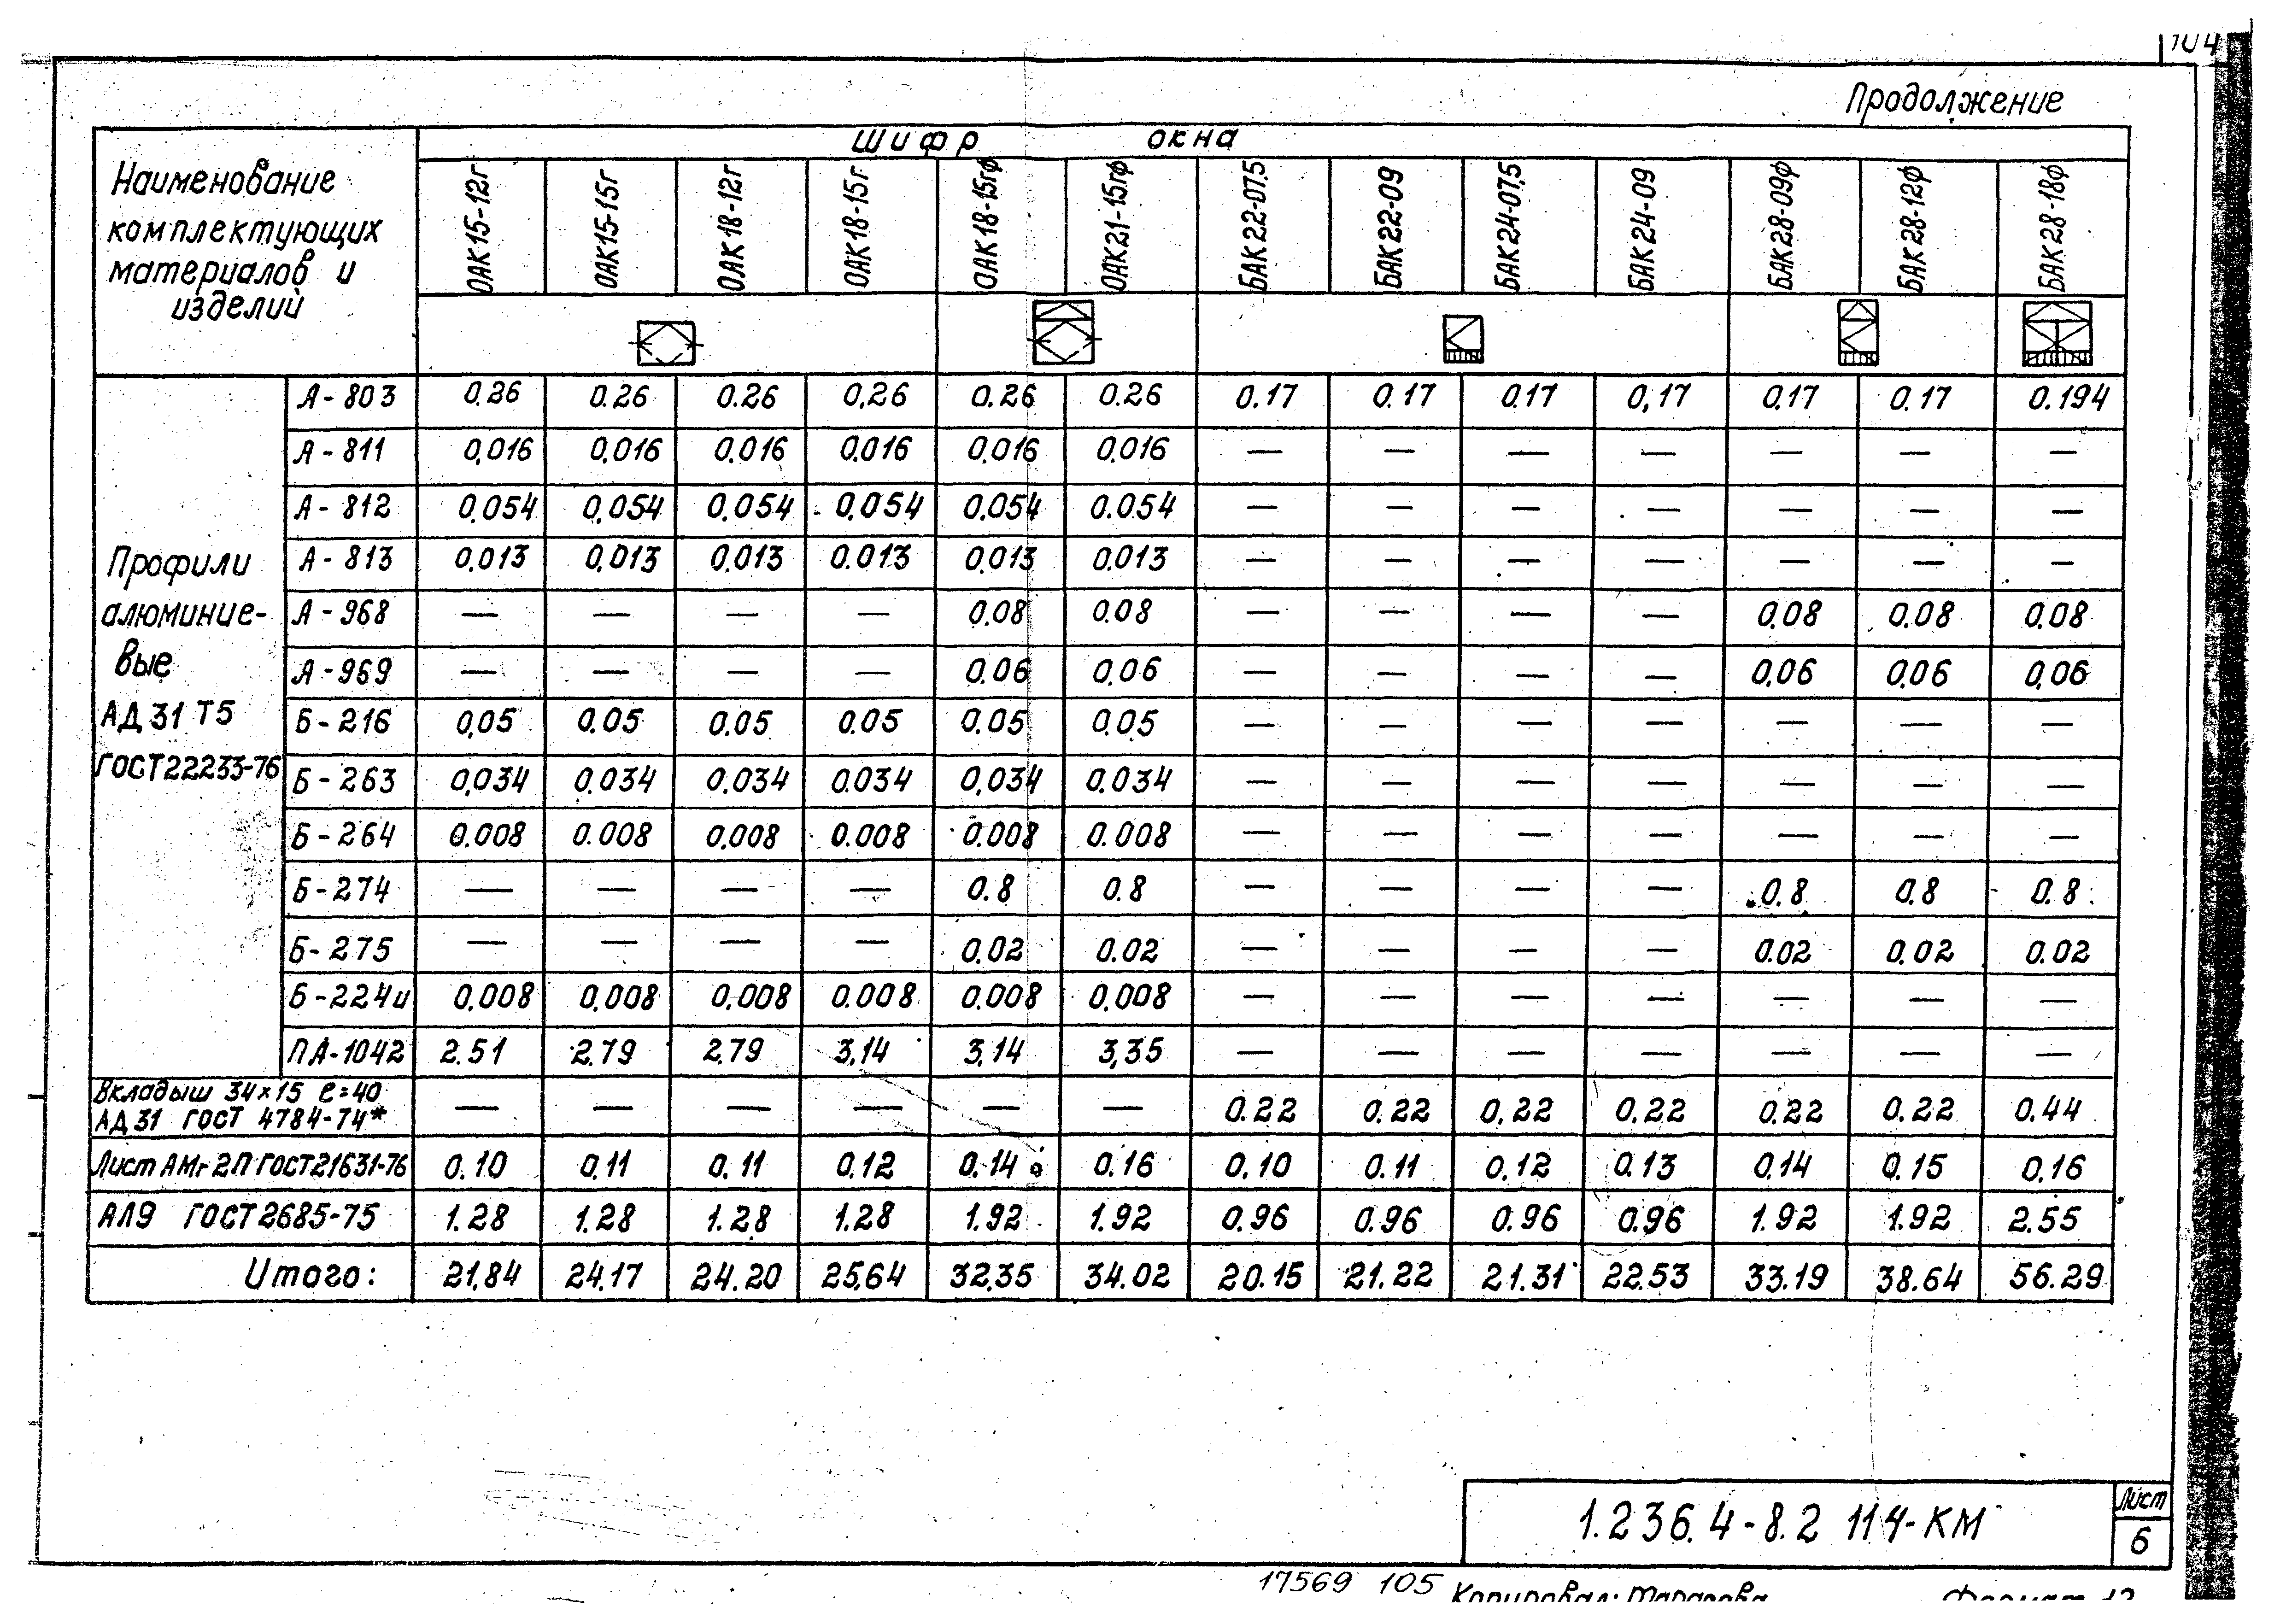 104
Продолжение
Наименование
комплектующих
материалов и
изделий
Шифр окна
ОАК15-12г ОАК15-15г ОАК18-12г ОАК18-15г ОАК18-15гф ОАК21-15гф БАК22-07,5 БАК22-09 БАК24-07,5 БАК24-09 БАК28-09ф БАК28-12ф БАК28-18ф
Профили
алюминие-
вые
АД31 Т5
ГОСТ22233-76
А-803 0.26 0.26 0.26 0,26 0.26 0.26 0.17 0.17 0.17 0,17 0.17 0.17 0.194
А-811 0,016 0,016 0.016 0.016 0.016 0.016 — — — — — — —
А-812 0.054 0,054 0,054 0,054 0,054 0.054 — — — — — — —
А-813 0,013 0,013 0.013 0.013 0,013 0.013 — — — — — — —
А-968 — — — — 0.08 0.08 — — — — 0,08 0,08 0,08
А-969 — — — — 0.06 0,06 — — — — 0,06 0,06 0,06
Б-216 0,05 0.05 0.05 0.05 0.05 0.05 — — — — — — —
Б-263 0,034 0.034 0.034 0.034 0,034 0.034 — — — — — — —
Б-264 0.008 0.008 0,008 0.008 0.008 0.008 — — — — — — —
Б-274 — — — — 0.8 0.8 — — — — 0.8 0.8 0.8
Б-275 — — — — 0.02 0.02 — — — — 0.02 0.02 0.02
Б-224и 0,008 0,008 0,008 0.008 0.008 0,008 — — — — — — —
ПА-1042 2.51 2.79 2,79 3,14 3,14 3,35 — — — — — — —
Вкладыш 34×15 ℓ=40
АД31 ГОСТ 4784-74* — — — — — — 0.22 0.22 0,22 0,22 0.22 0.22 0.44
Лист АМг2П ГОСТ21631-76 0.10 0.11 0.11 0.12 0.14 0.16 0.10 0.11 0.12 0.13 0.14 0.15 0.16
АЛ9 ГОСТ2685-75 1.28 1.28 1.28 1.28 1.92 1.92 0.96 0.96 0.96 0.96 1.92 1.92 2.55
Итого: 21,84 24,17 24.20 25,64 32,35 34.02 20.15 21.22 21.31 22.53 33.19 38.64 56.29
1.236.4-8.2 114-КМ
Лист
6
17569 105
Копировал: Тарасова
Формат 12